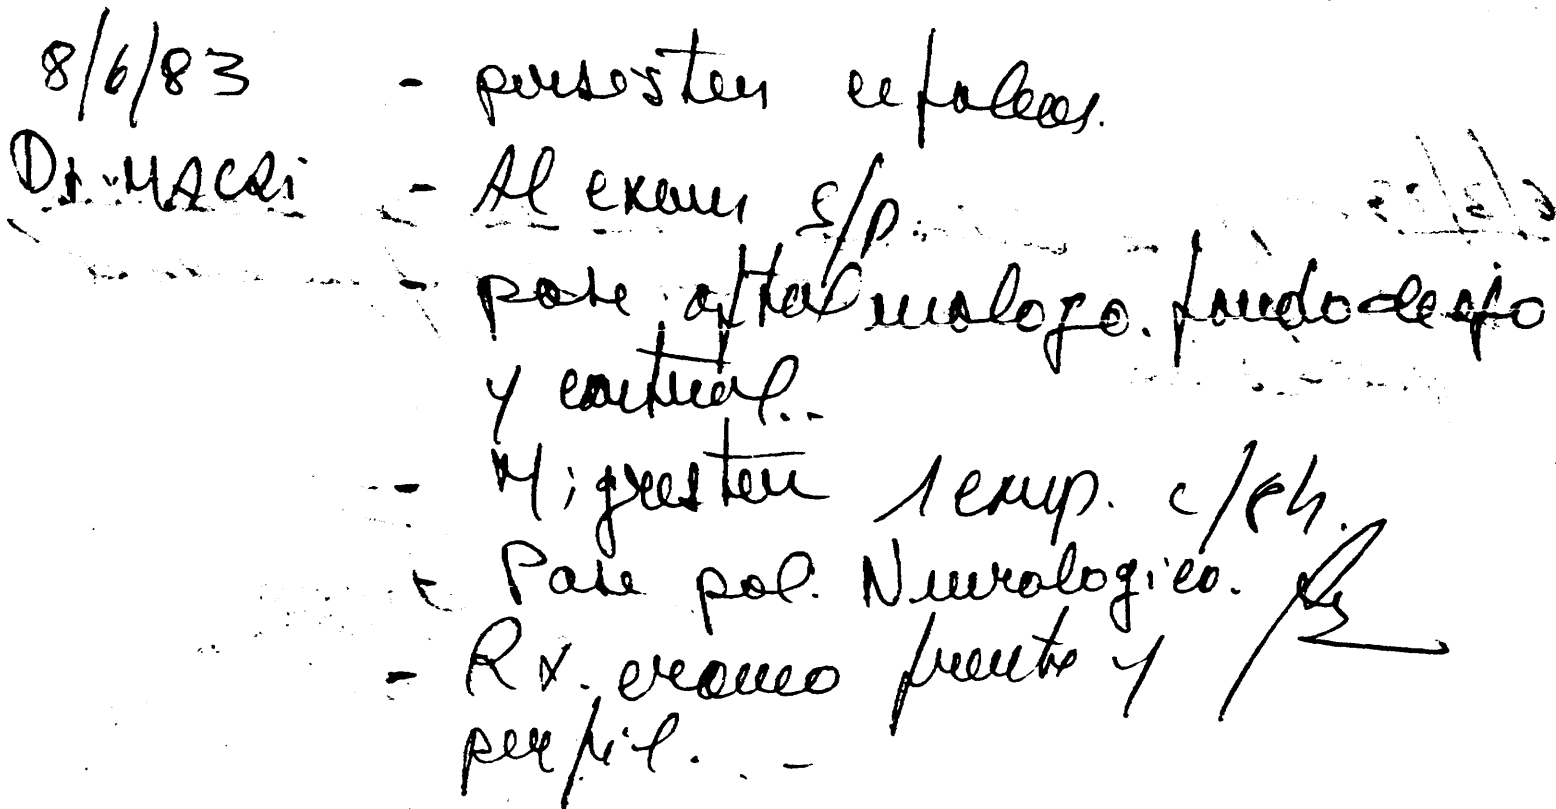 8/6/83 - persisten cefaleas.
Dr. MACRI - Al examen s/p.
- pase oftalmologo. fondo de ojo
y control..
- Migresten 1 comp. c/8h.
- Pase pol. Neurologico.
- Rx. craneo frente y
perfil. . -